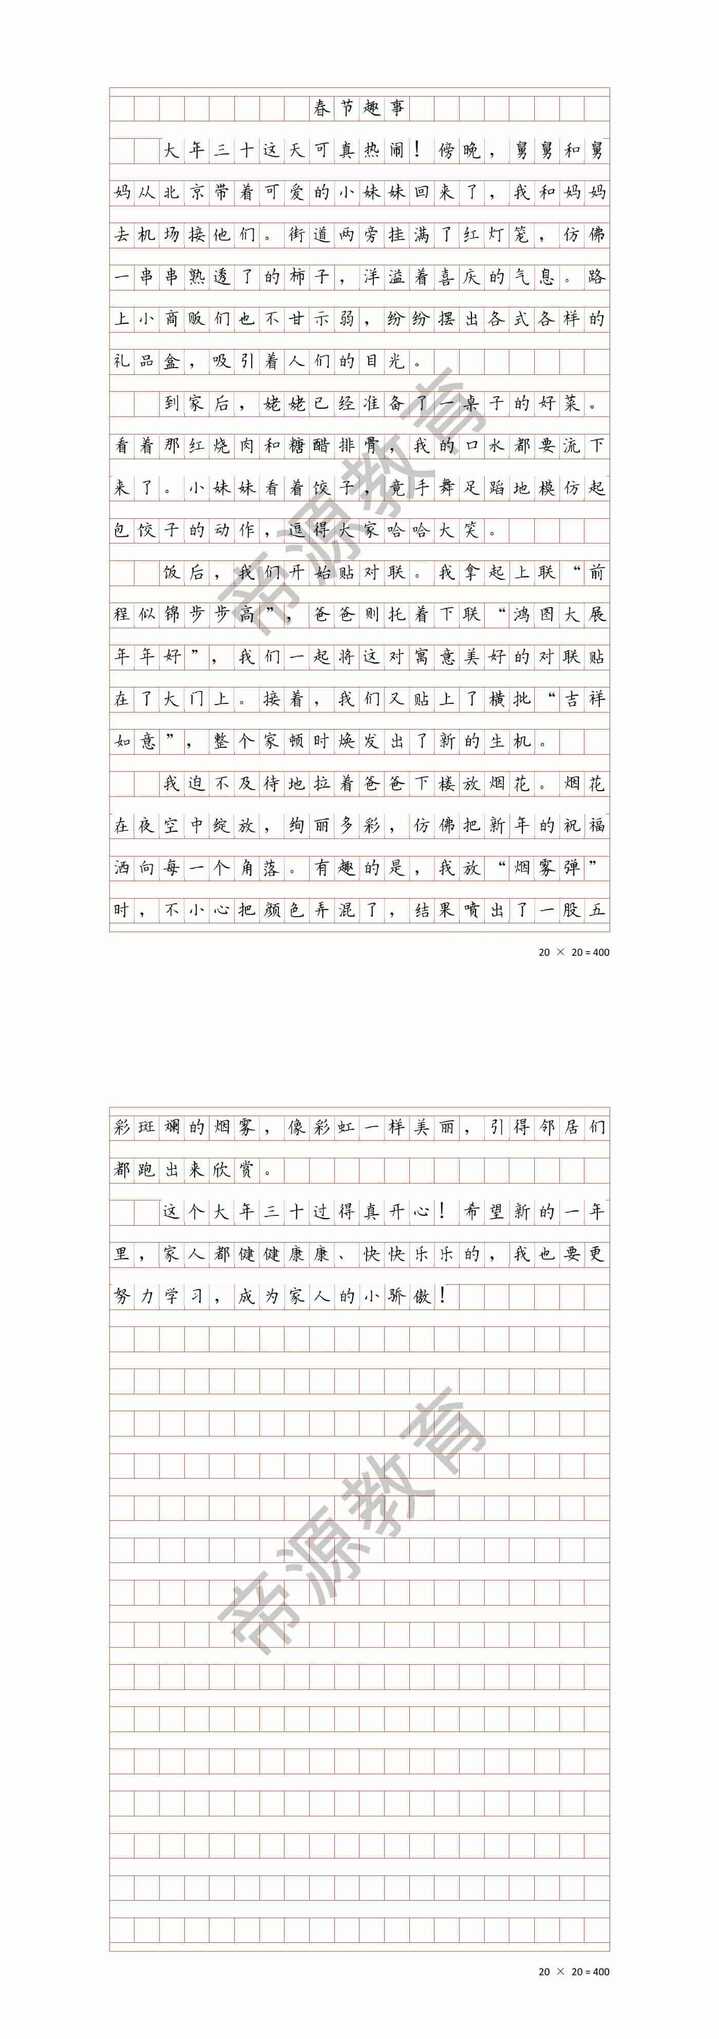 春节趣事
大年三十这天可真热闹！傍晚，舅舅和舅
妈从北京带着可爱的小妹妹回来了，我和妈妈
去机场接他们。街道两旁挂满了红灯笼，仿佛
一串串熟透了的柿子，洋溢着喜庆的气息。路
上小商贩们也不甘示弱，纷纷摆出各式各样的
礼品盒，吸引着人们的目光。
到家后，姥姥已经准备了一桌子的好菜。
看着那红烧肉和糖醋排骨，我的口水都要流下
来了。小妹妹看着饺子，竟手舞足蹈地模仿起
包饺子的动作，逗得大家哈哈大笑。
饭后，我们开始贴对联。我拿起上联“前
程似锦步步高”，爸爸则托着下联“鸿图大展
年年好”，我们一起将这对寓意美好的对联贴
在了大门上。接着，我们又贴上了横批“吉祥
如意”，整个家顿时焕发出了新的生机。
我迫不及待地拉着爸爸下楼放烟花。烟花
在夜空中绽放，绚丽多彩，仿佛把新年的祝福
洒向每一个角落。有趣的是，我放“烟雾弹”
时，不小心把颜色弄混了，结果喷出了一股五
20 × 20 = 400
彩斑斓的烟雾，像彩虹一样美丽，引得邻居们
都跑出来欣赏。
这个大年三十过得真开心！希望新的一年
里，家人都健健康康、快快乐乐的，我也要更
努力学习，成为家人的小骄傲！
20 × 20 = 400
帝源教育
帝源教育